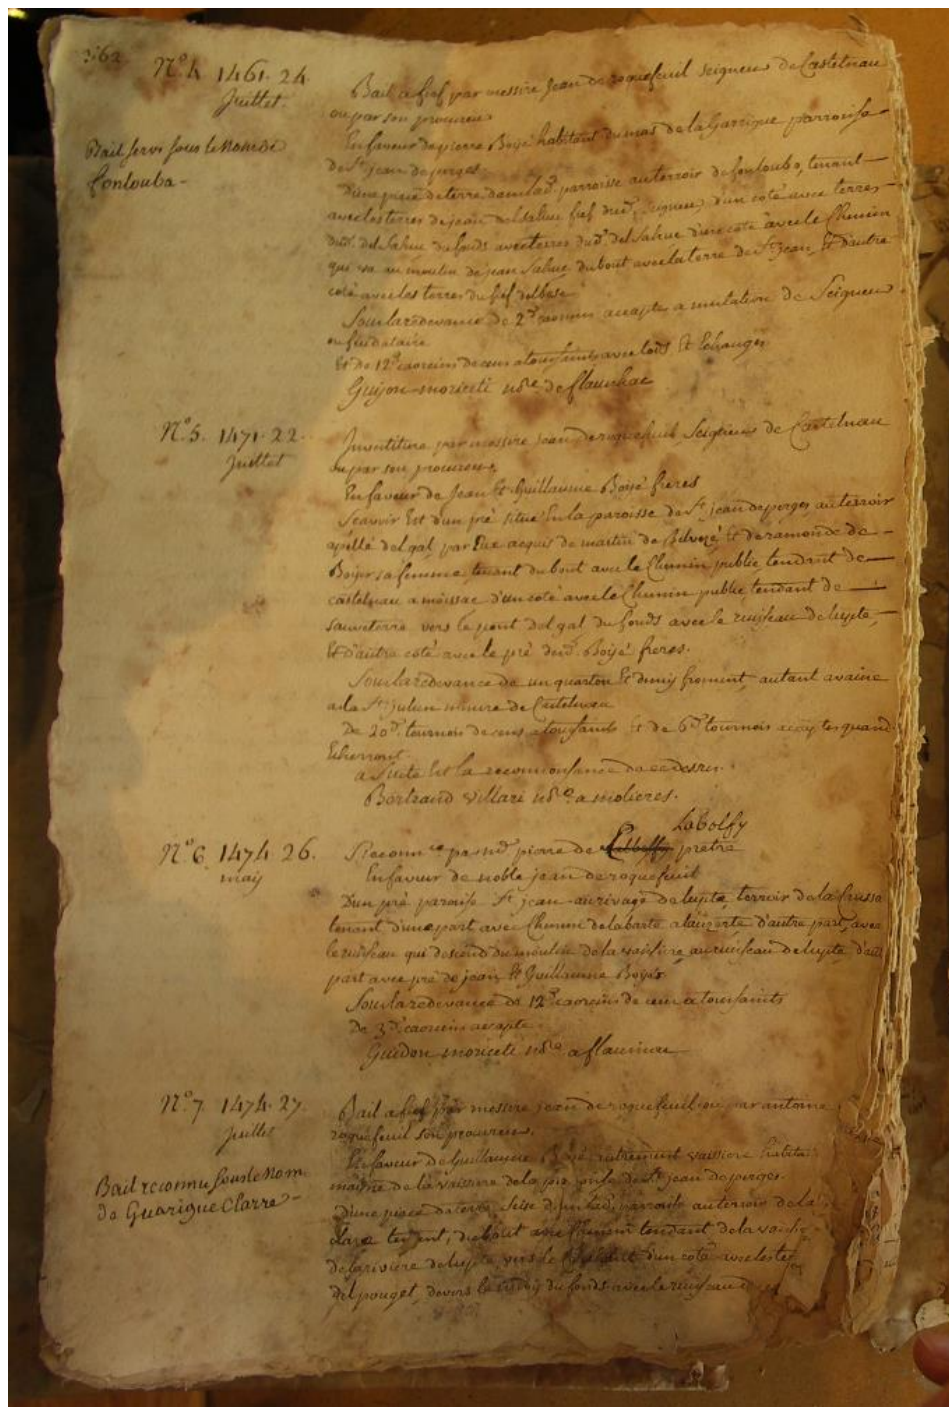 362
N.° 4 1461. 24.
Juillet.
Bail servi sous le nom de
fontouba -
Bail a fief par messire Jean de roquefeuil Seigneur de Castelnau
ou par son procureur
En faveur de pierre Boyé habitant du mas de la Garrigue parroisse
de S.t jean de perges
D'une piece de terre dans lad. parroisse au terroir de fontoubo, tenant
avec les terres de jean del Sahuc fief dud. Seigneur, d'un coté avec terres
dud. del Sahuc du fonds avec terres dud. del Sahuc d'un coté avec le Chemin
qui va au moulin de jean Sahuc du bout avec la terre de S.t jean, Et d'autre
coté avec les terres du fief
Sous la redevance de 2.d caorcins acapte a mutation de Seigneur
ou feudataire
Et de 12.d caorcins de cens a toussaints avec lods Et Echanges
Guijon moriceti n.re de flaunhac
N.° 5. 1471. 22.
Juillet
Investiture par messire jean de roquefeuil Seigneur de Castelnau
ou par son procureur
En faveur de Jean Et Guillaume Boyé freres
Scavoir Est d'un pré situé En la paroisse de S.t jean de perges au terroir
apellé del gal par Eux acquis de martin de Et de ramonde de
Boyer sa femme, tenant du bout avec le Chemin public tendant de
castelnau a moissac d'un coté avec le Chemin public tendant de
sauveterre vers le pont del gal du fonds avec le ruisseau de lupte,
Et d'autre coté avec le pré desd. Boyé freres.
Sous la redevance de un quarton Et demy froment, autant avoine
a la S.t julien mesure de Castelnau
De 20.d tournois de cens a toussaints Et de 6.d tournois acaptes quand
Echerront
a Suite Est la reconnoissance de ce dessus.
Bertrand Villari n.re a molieres.
N.° 6 1474 26.
may
Labolfy
Reconn.ce pa m.re pierre de prêtre
En faveur de noble jean de roquefeuil
D'un pré paroisse S.t jean au rivage de lupte, terroir de la Crusse
tenant d'une part avec Chemin de labarte a lauzerte d'autre part, avec
le ruisseau qui descend du moulin de la vaissiere au ruisseau de lupte, d'autre
part avec pré de jean Et Guillaume Boyés
Sous la redevance de 12.d caorcins de cens a toussaints
De 3.d caorcins acapte
Guidon moriceti n.re a flaunhac
N.° 7. 1474. 27.
Juillet
Bail reconnu sous le nom
de Guarrigue Clarre -
Bail a fief par messire jean de roquefeuil ou par antoine
roquefeuil son procureur.
En faveur de Guillaume Boyé autrement vaissiere habitant
de la vaissiere de la paroisse de S.t jean de perges.
D'une piece de terre Scise dans lad. parroisse au terroir de la
clare tenent, du bout avec Chemin tendant de la
de la riviere de lupte vers le d'un coté avec les
del pouget, devers le du fonds avec le ruisseau de